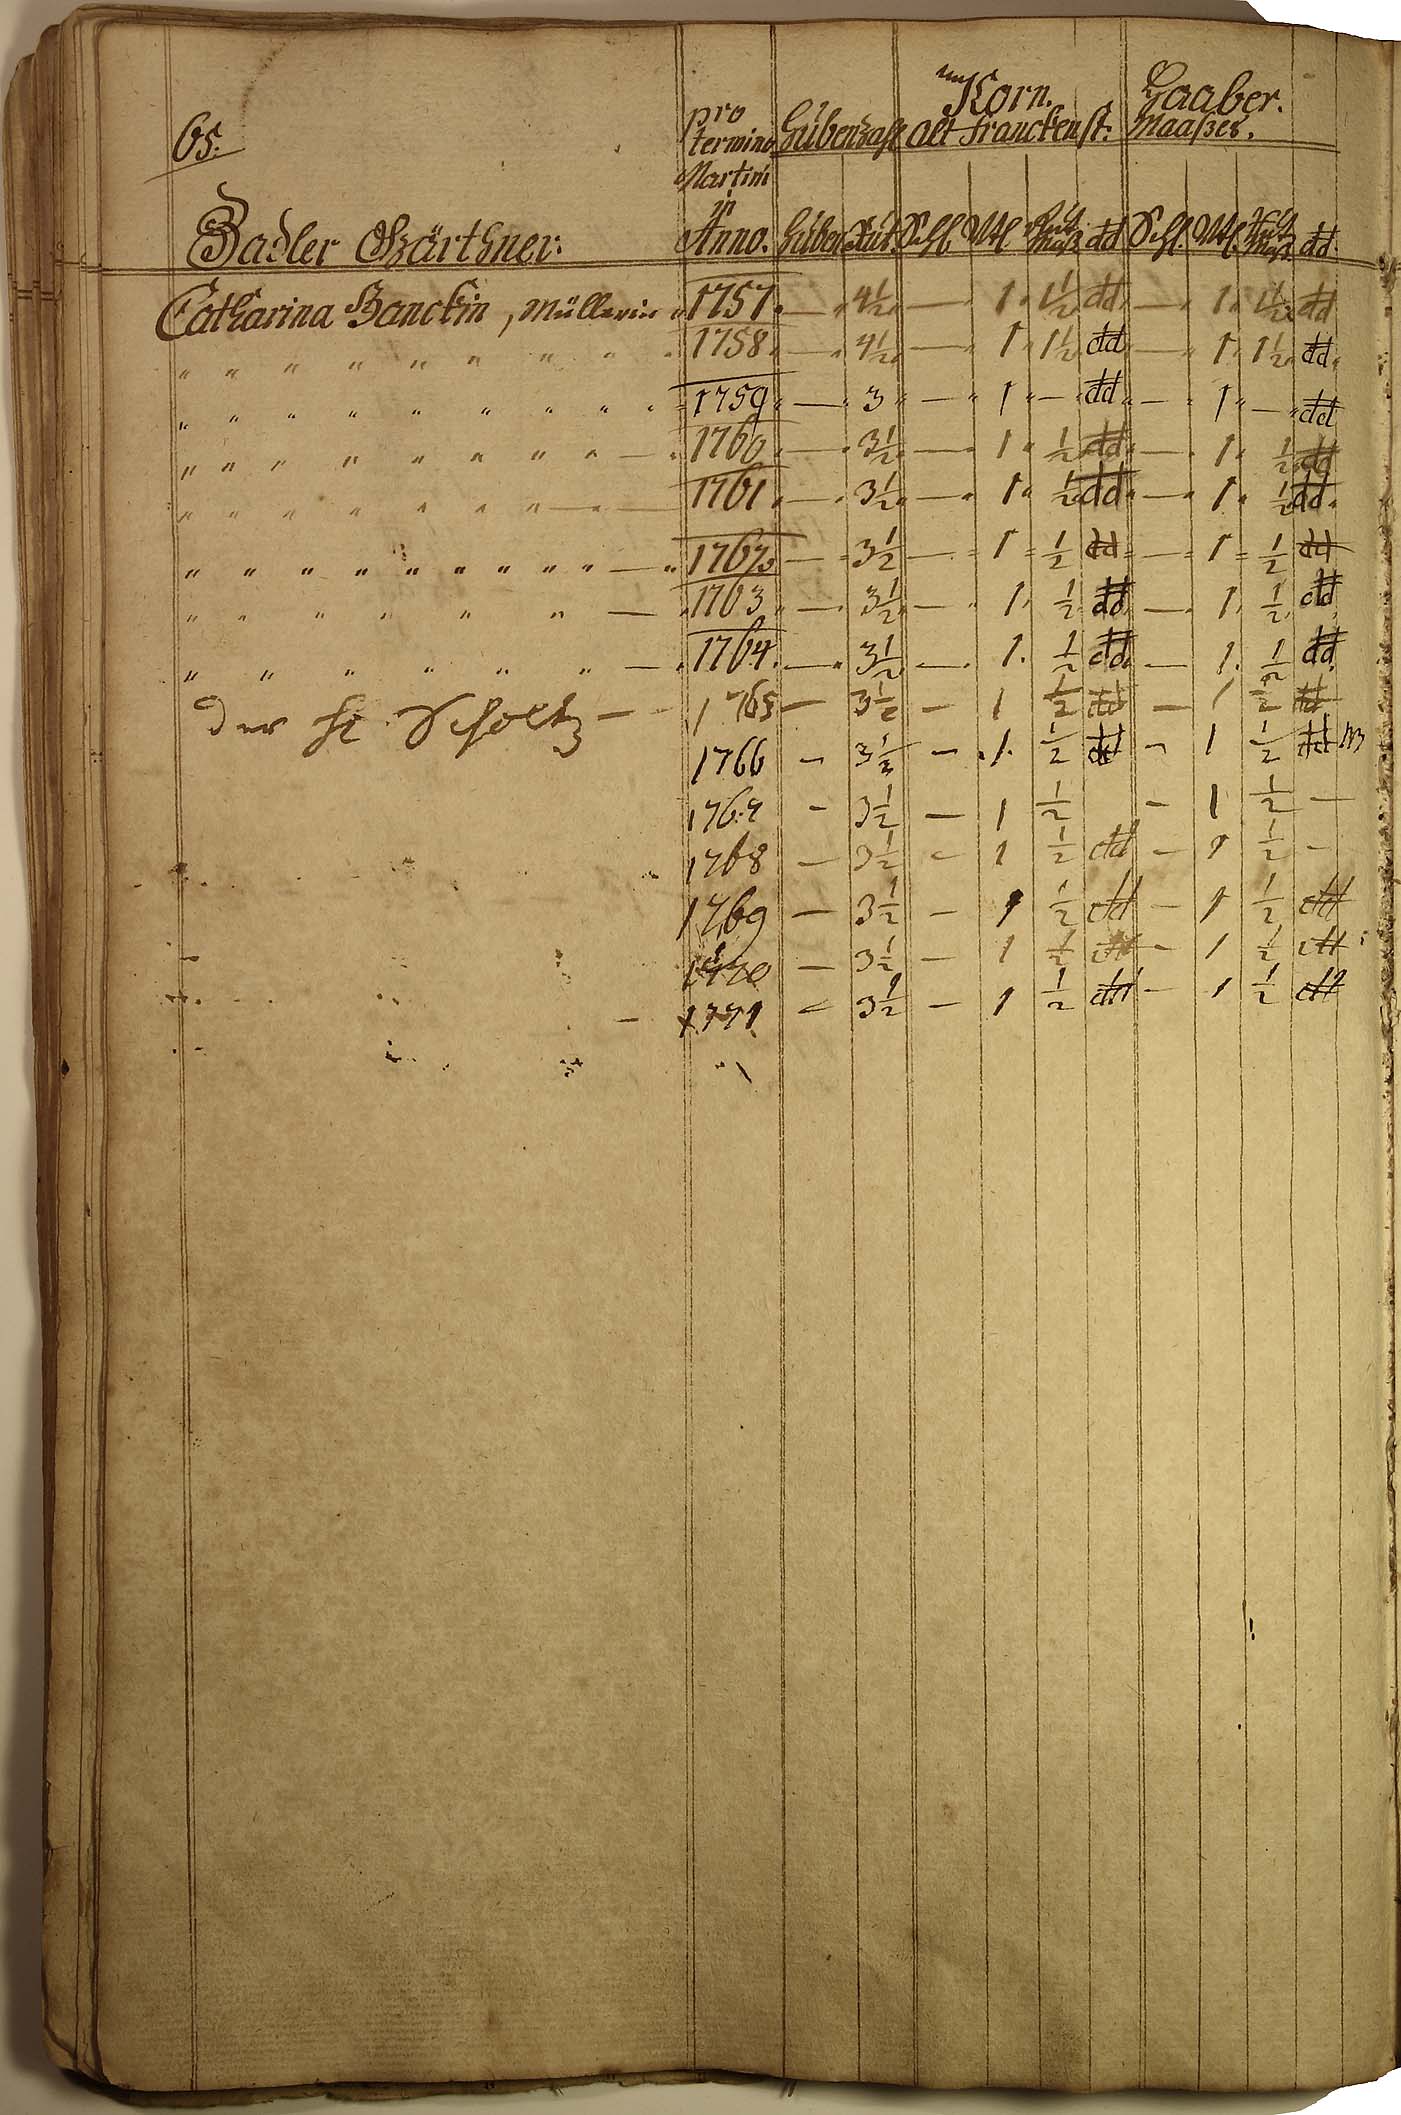 65.
Zadler Gärthner.
pro
termino
Martini
in
Anno.
Hubenzahl
an Korn. Haaber.
alt Franckenst: Maaßes.
Huben Rut. Schl. Vtl. dd Schl. Vtl. dd
Catharina Banckin, Müllerin " 1757. — " 4½ — 1 " 1½ dd — 1 " 1½ dd
" " " " " " " " 1758 — " 4½ — 1 " 1½ dd — 1 " 1½ dd
" " " " " " " " " 1759 — " 3 " — 1 " — dd — 1 " — dd
" " " " " " " " — 1760 — " 3½ — 1 " ½ dd — 1 " ½ dd
" " " " " " " " — 1761 — " 3½ — 1 " ½ dd — 1 " ½ dd
" " " " " " " " " " — 1762 — " 3½ — 1 " ½ dd — 1 " ½ dd
" " " " " " — 1763 — " 3½ — 1 " ½ dd — 1 " ½ dd
" " " " " " — 1764 — " 3½ — 1. ½ dd — 1. ½ dd
der H. Scholtz — 1765 — 3½ — 1 ½ dd — 1 ½ dd
1766 — 3½ — 1. ½ dd — 1 ½ dd
1767 — 3½ — 1 ½ — 1 ½ —
1768 — 3½ — 1 ½ dd — 1 ½ —
1769 — 3½ — 1 ½ dd — 1 ½ dd
1770 — 3½ — 1 ½ dd — 1 ½ dd
— 1771 — 3½ — 1 ½ dd — 1 ½ dd